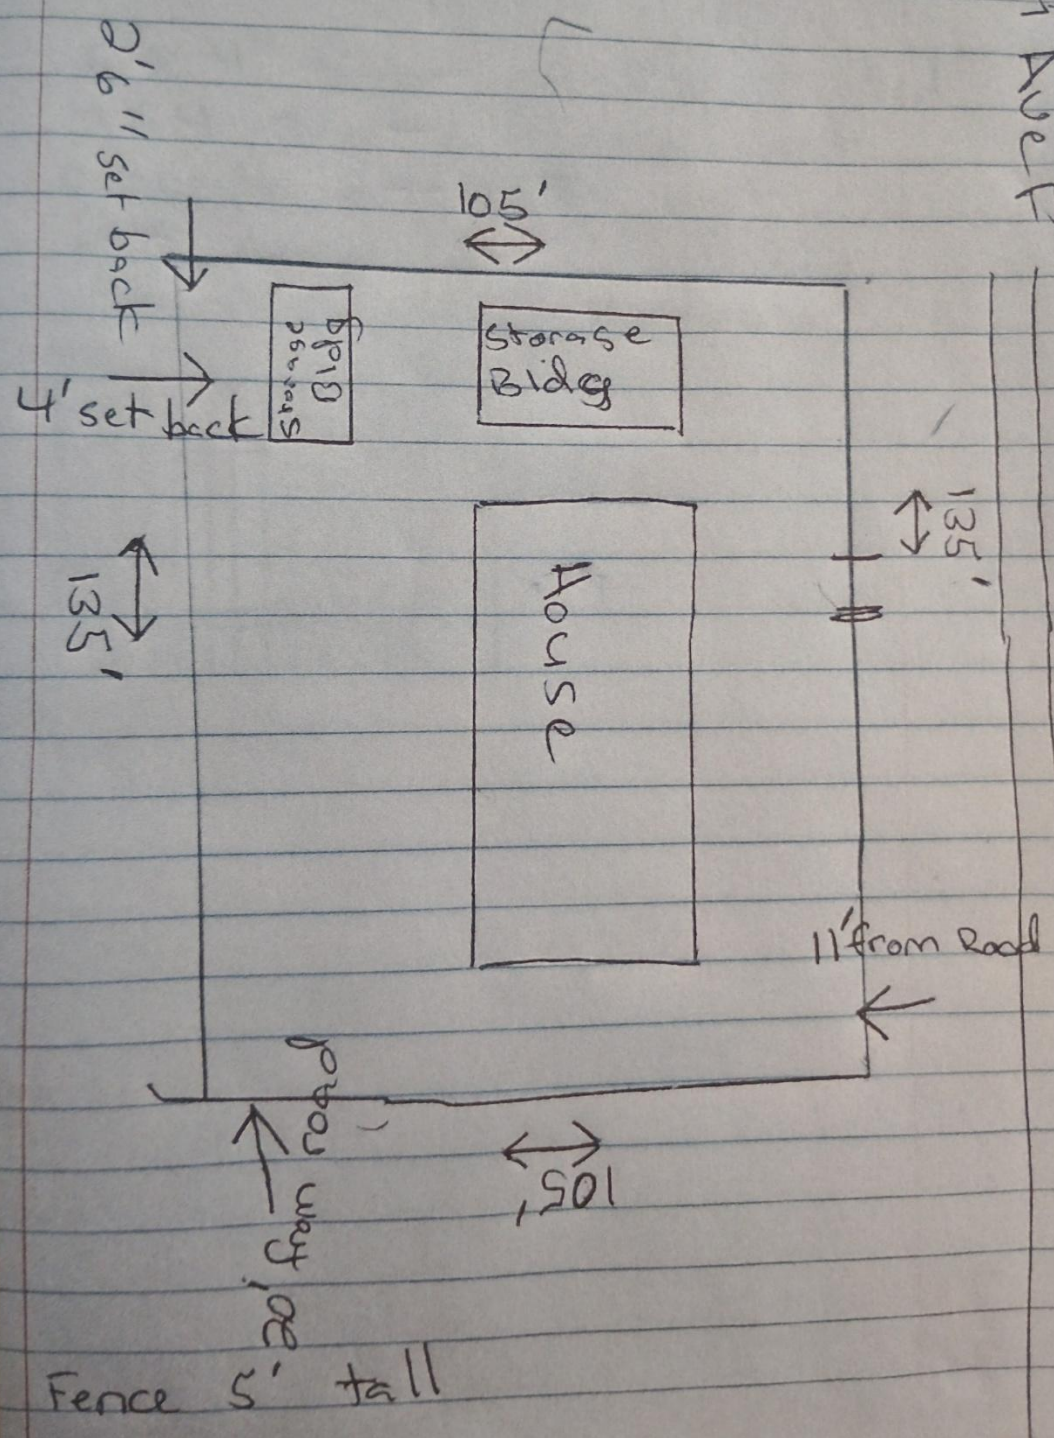 Ave
2'6" set back
105'
Storage
Bldg
Storage
Bldg
4' set back
135'
135'
House
11' from Road
105'
20' way
Fence 5' tall